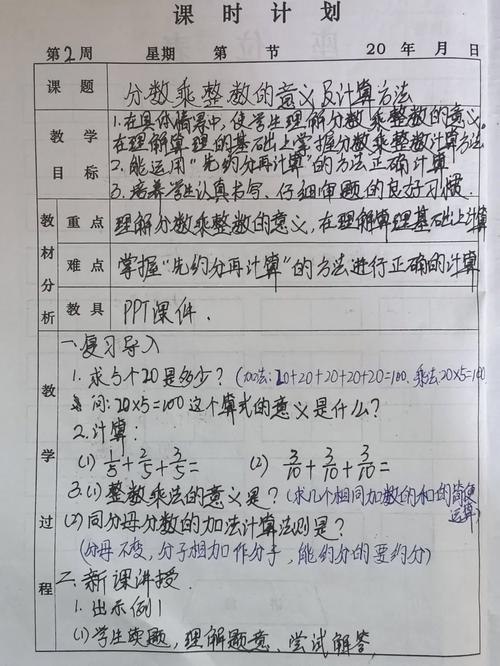 课时计划
第2周 星期 第 节 20 年 月 日
课题 分数乘整数的意义及计算方法
教学目标 1.在具体情景中,使学生理解分数乘整数的意义。
在理解算理的基础上掌握分数乘整数计算方法
2.能运用“先约分再计算”的方法正确计算
3.培养学生认真书写、仔细审题的良好习惯.
教材分析 重点 理解分数乘整数的意义,在理解算理基础上计算
难点 掌握“先约分再计算”的方法进行正确的计算
教具 PPT课件.
教学过程
一.复习导入
1.求5个20是多少?(加法:20+20+20+20+20=100.乘法:20×5=100
问:20×5=100这个算式的意义是什么?
2.计算:
(1) 1/5+2/5+3/5= (2) 3/10+3/10+3/10=
3.(1)整数乘法的意义是?(求几个相同加数的和的简便运算)
(2)同分母分数的加法计算法则是?
(分母不变,分子相加作分子,能约分的要约分)
二.新课讲授.
1.出示例1
(1)学生读题,理解题意、尝试解答